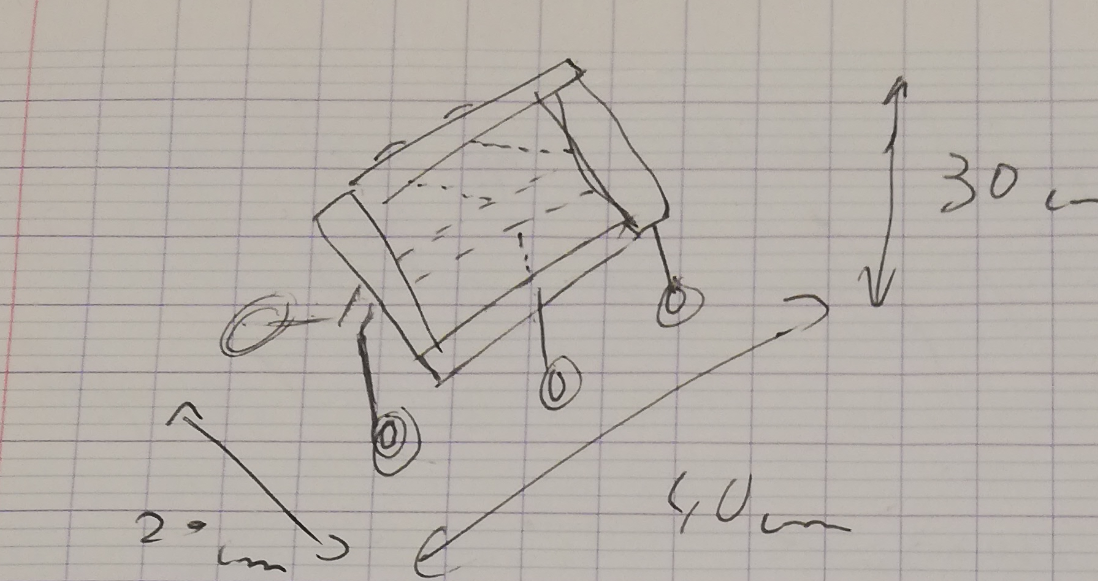 30 cm
40 cm
20 cm